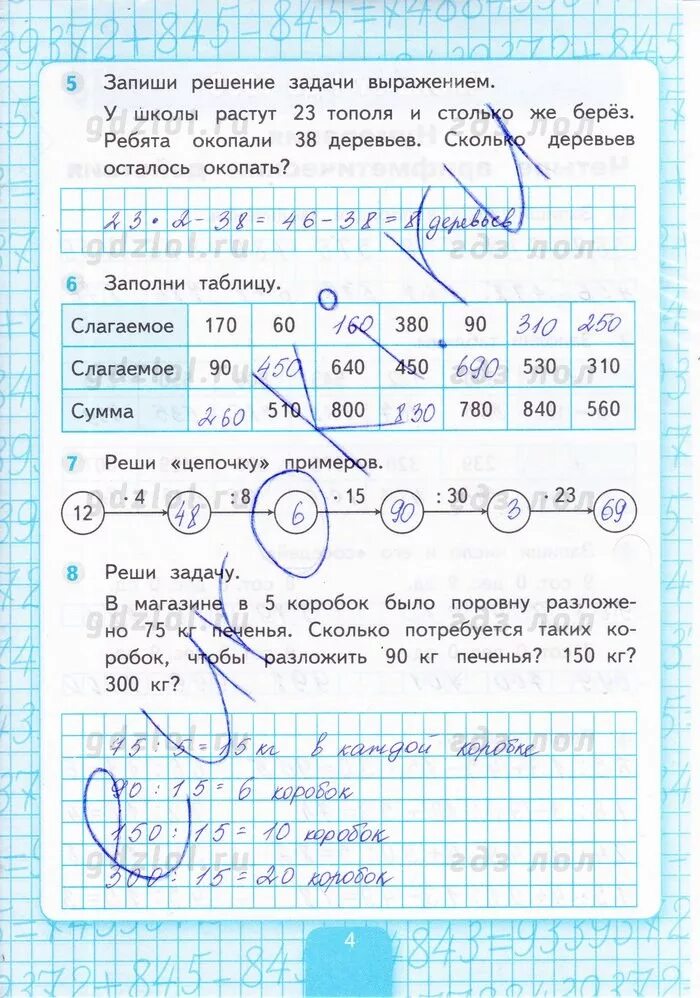 5 Запиши решение задачи выражением.
У школы растут 23 тополя и столько же берёз.
Ребята окопали 38 деревьев. Сколько деревьев
осталось окопать?
23 · 2 - 38 = 46 - 38 = 8 деревьев
6 Заполни таблицу.
Слагаемое 170 60 160 380 90 310 250
Слагаемое 90 450 640 450 690 530 310
Сумма 260 510 800 830 780 840 560
7 Реши «цепочку» примеров.
· 4 : 8 · 15 : 30 · 23
12 48 6 90 3 69
8 Реши задачу.
В магазине в 5 коробок было поровну разложе-
но 75 кг печенья. Сколько потребуется таких ко-
робок, чтобы разложить 90 кг печенья? 150 кг?
300 кг?
75 : 5 = 15 кг в каждой коробке
90 : 15 = 6 коробок
150 : 15 = 10 коробок
300 : 15 = 20 коробок
4
gdzlol.ru
гдз лол